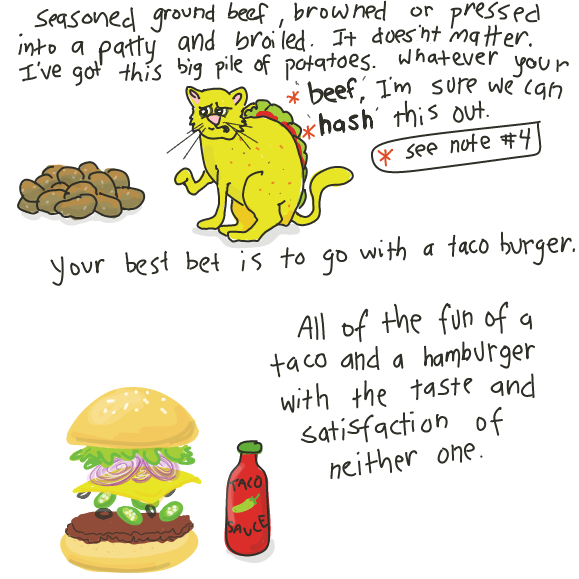 Seasoned ground beef, browned or pressed
into a patty and broiled. It does'nt matter.
I've got this big pile of potatoes. Whatever your
* 'beef', I'm sure we can
* 'hash' this out.
* see note #4
Your best bet is to go with a taco burger.
All of the fun of a
taco and a hamburger
with the taste and
satisfaction of
neither one.
TACO
SAUCE